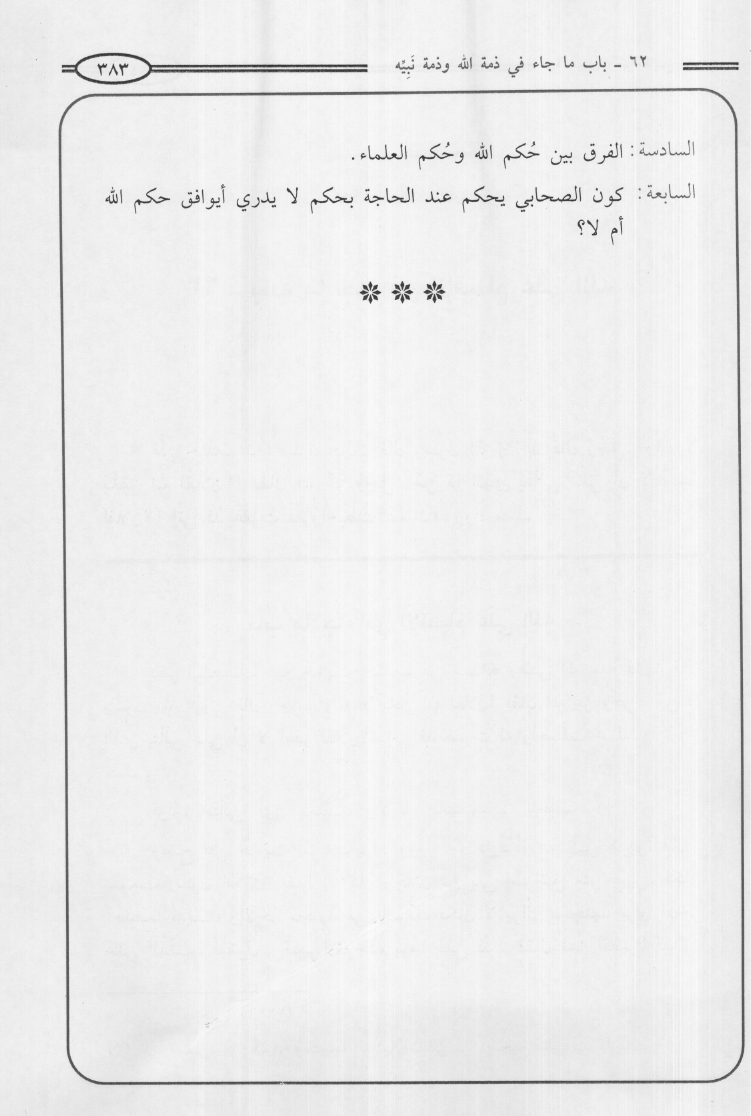 ٦٢ ـ باب ما جاء في ذمة الله وذمة نَبِيِّه
٣٨٣
السادسة: الفرق بين حُكم الله وحُكم العلماء.
السابعة: كون الصحابي يحكم عند الحاجة بحكم لا يدري أيوافق حكم الله
أم لا؟